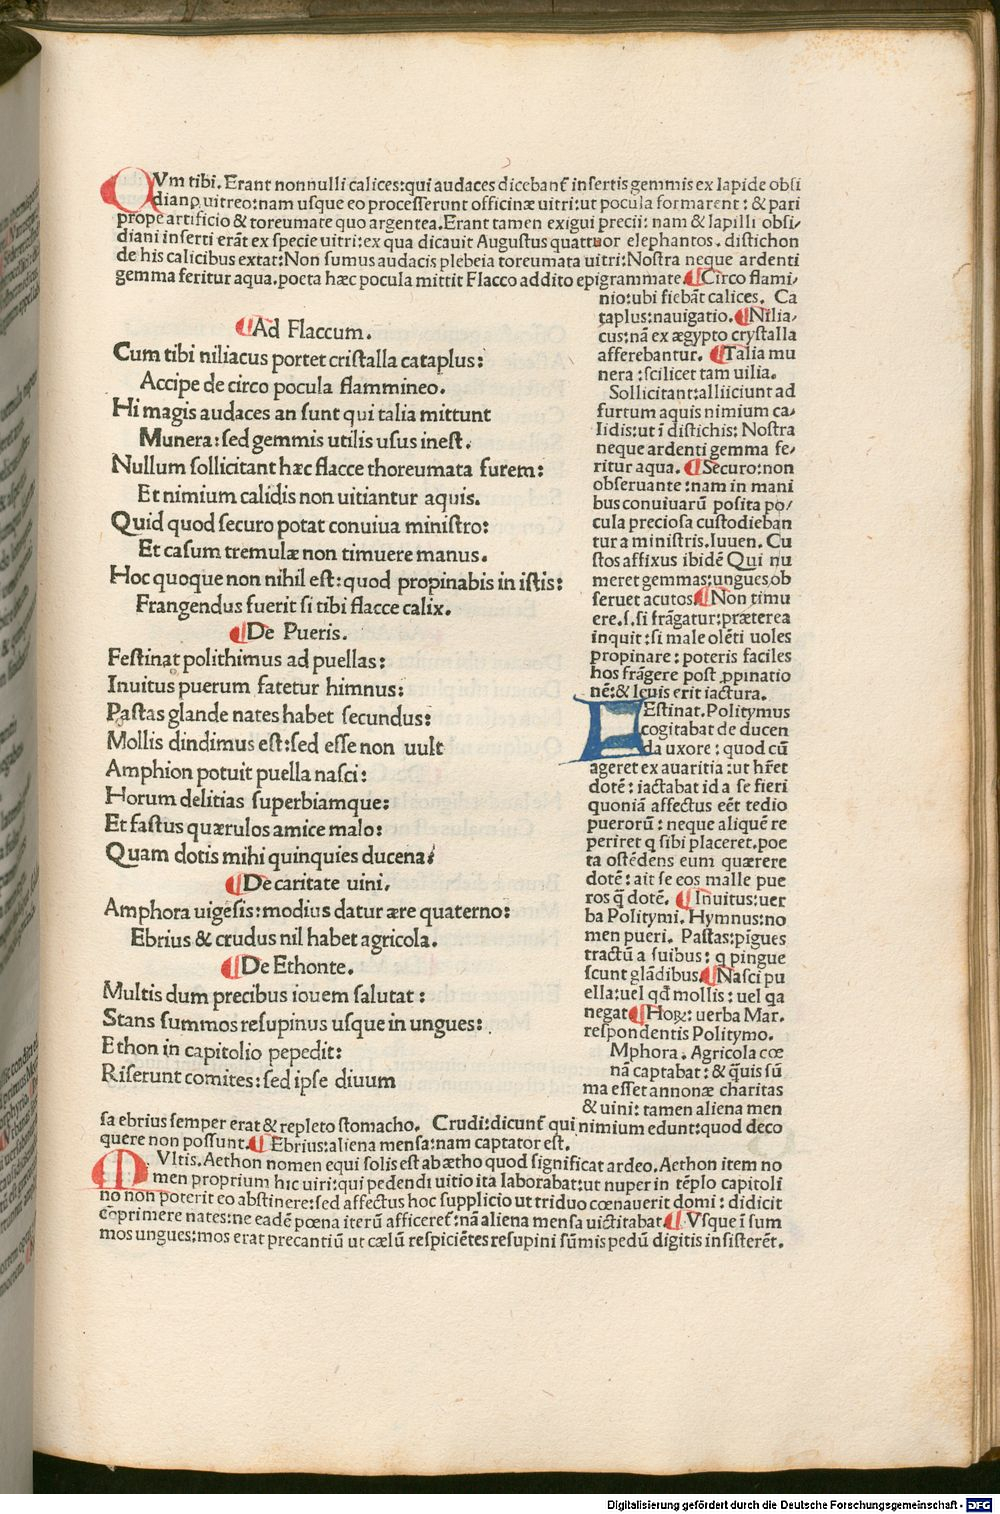 QVm tibi. Erant nonnulli calices:qui audaces dicebant̄ insertis gemmis ex lapide obsi
diano uitreo:nam usque eo processerunt officinæ uitri:ut pocula formarent: & pari
prope artificio & toreumate quo argentea.Erant tamen exigui precii: nam & lapilli obsi/
diani inserti erāt ex specie uitri:ex qua dicauit Augustus quattuor elephantos. distichon
de his calicibus extat:Non sumus audacis plebeia toreumata uitri:Nostra neque ardenti
gemma feritur aqua.poeta hæc pocula mittit Flacco addito epigrammate.¶Circo flami/
nio:ubi fiebāt calices. Ca
taplus:nauigatio.¶Nilia/
cus:nā ex ægypto crystalla
afferebantur. ¶Talia mu
nera:scilicet tam uilia.
Sollicitant:alliiciunt ad
furtum aquis nimium ca/
lidis:ut ī distichis: Nostra
neque ardenti gemma fe/
ritur aqua. ¶Securo:non
obseruante:nam in mani
bus conuiuarū posita po/
cula preciosa custodieban
tur a ministris.Iuuen. Cu
stos affixus ibidē Qui nu
meret gemmas:ungues,ob
seruet acutos.¶Non timu
ere.s.si frāgatur:præterea
inquit:si male olēti uoles
propinare:poteris faciles
hos frāgere post ꝓpinatio
nē:& leuis erit iactura.
¶Ad Flaccum.
Cum tibi niliacus portet cristalla cataplus:
Accipe de circo pocula flammineo.
Hi magis audaces an sunt qui talia mittunt
Munera:sed gemmis utilis usus inest.
Nullum sollicitant hæc flacce thoreumata furem:
Et nimium calidis non uitiantur aquis.
Quid quod securo potat conuiua ministro:
Et casum tremulæ non timuere manus.
Hoc quoque non nihil est:quod propinabis in istis:
Frangendus fuerit si tibi flacce calix.
¶De Pueris.
Festinat polithimus ad puellas:
Inuitus puerum fatetur himnus:
Pastas glande nates habet secundus:
Mollis dindimus est:sed esse non uult
Amphion potuit puella nasci:
Horum delitias superbiamque:
Et fastus quærulos amice malo:
Quam dotis mihi quinquies ducena:
¶De caritate uini.
Amphora uigesis:modius datur ære quaterno:
Ebrius & crudus nil habet agricola.
¶De Ethonte.
Multis dum precibus iouem salutat:
Stans summos resupinus usque in ungues:
Ethon in capitolio pepedit:
Riserunt comites:sed ipse diuum
FEstinat.Politymus
cogitabat de ducen
da uxore:quod cū
ageret ex auaritia:ut hr̄et
dotē:iactabat id a se fieri
quoniā affectus eēt tedio
puerorū:neque aliquē re
periret q sibi placeret.poe
ta ostēdens eum quærere
dotē:ait se eos malle pue
ros q̄ dotē. ¶Inuitus:uer
ba Politymi. Hymnus:no
men pueri. Pastas:pīgues
tractū a suibus: q pingue
scunt glādibus.¶Nasci pu
ella:uel qđ mollis:uel qa
negat¶Hoꝝ: uerba Mar.
respondentis Politymo.
Mphora. Agricola cœ
nā captabat:& q̄uis sū
ma esset annonæ charitas
& uini: tamen aliena men
sa ebrius semper erat & repleto stomacho. Crudi:dicunt̄ qui nimium edunt:quod deco
quere non possunt.¶Ebrius:aliena mensa:nam captator est.
MVltis.Aethon nomen equi solis est ab ætho quod significat ardeo.Aethon item no
men proprium hic uiri:qui pedendi uitio ita laborabat:ut nuper in tēplo capitoli
no non poterit eo abstinere:sed affectus hoc supplicio ut triduo cœnauerit domi:didicit
cōprimere nates:ne eadē pœna iterū afficeret̄:nā aliena mensa uictitabat.¶Vsque ī sum
mos ungues:mos erat precantiū ut cælū respiciētes resupini sūmis pedū digitis insisterēt.
Digitalisierung gefördert durch die Deutsche Forschungsgemeinschaft - DFG